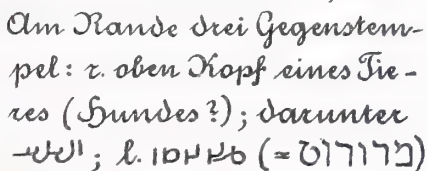 Am Rande drei Gegenstem-
pel: r. oben Kopf eines Tie-
res (Hundes?); darunter
; l. (= )